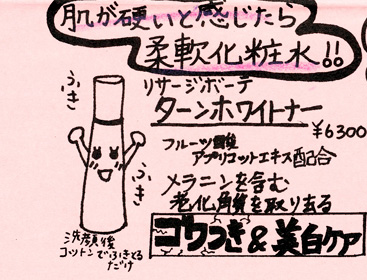 肌が硬いと感じたら
柔軟化粧水!!
リサージボーテ
ターンホワイトナー
¥6300
フルーツ酸
アプリコットエキス配合
メラニンを含む
老化角質を取り去る
ゴワつき&美白ケア
ふき
ふき
洗顔後
コットンでふきとる
だけ